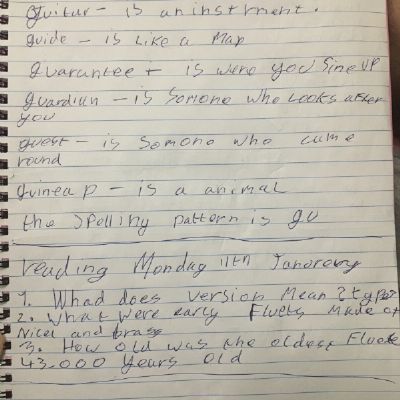 guitur - is an instrment.
guide - is Like a Map
guarantee + is were you Sine up
guardian - is Somone who Looks after
you
guest - is Somone who came
round
guinea p - is a animal
the Spelling pattern is gu
reading Monday 11th Janorary
1. Whad does version Mean? type
2. What were early Fluets Made of
Nicel and brass
3. How old was the oldest Fluete
43.000 years old